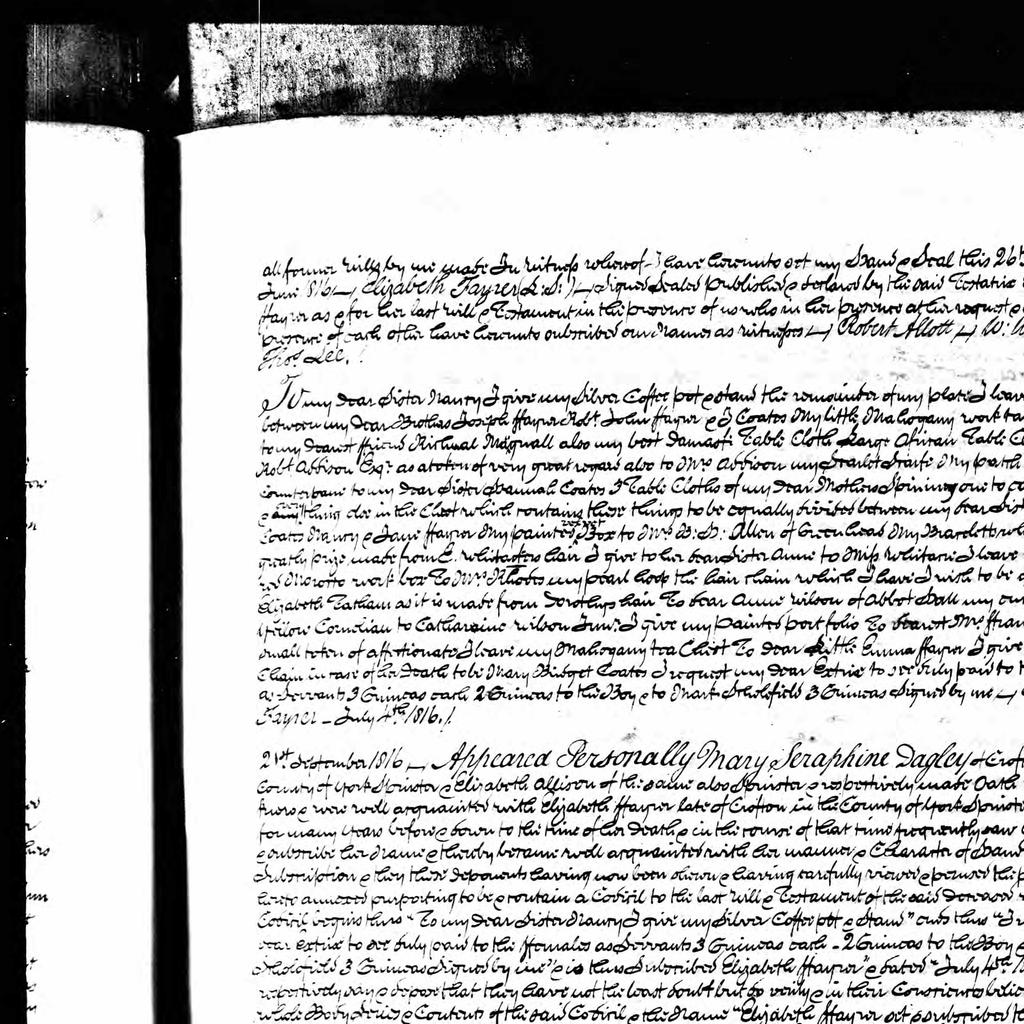 all former Wills by me made In witness whereof I have hereunto set my Hand & Seal this 26th
June 1816 — Elizabeth Fayrer (L:S:) — Signed Sealed published & declared by the said Testatrix
ffayrer as & for her last Will & Testament in the presence of us who in her presence at her request &
presence of each other have hereunto subscribed our Names as witnesses — Robert Allott — W: W
Thos. Lee. /
To my dear Sister Nancy I give my Silver Coffee pot & stand the remainder of my plate I leave
between my dear Brothers Joseph ffayrer Robt. John ffayrer & J Coates My little Mahogany work ta
to my dearest ffriend Richual Magnall also my best Damask Table Cloth Large Table C
Robt Addison Esqr. as a token of very great regard also to Mrs. Addison my Scarlet Scarfe My patch
Counterpane to my dear Sister Hannah Coates 3 Table Cloths of my dear Mothers Spinning one to
& any thing else in the Chest which contains these things to be equally divided between my dear Sist
Coates Nancy & Jane ffayrer My painted velvet Box to Mrs. B: D: Allen of Greenhead My Bracelet wh
greatly prize made from E. Whitakers hair I give to her dear Sister Anne to Miss Whitacre I leave
red Morotto work box To Mrs. Rhodes my pearl hoop the hair chain which I have I wish to be
Elizabeth Tatham as it is made from Dorothys hair To dear Anne Wilson of Abbot Hall my
Yellow Cornelian to Catharine Wilson Junr. I give my painted port folio To dearest Mrs ffran
small token of affectionate I leave my Mahogany tea Chest To dear Little Emma ffayrer I give
Chain in case of her Death to be Mary Bridget Coates I request my dear Extrix to see duly paid to
as Servants 3 Guineas each 2 Guineas to the Boy & to Mark Scholefield 3 Guineas Signed by me —
Fayrer — July 4th 1816. /
21st September 1816 — Appeared Personally Mary Seraphine Dagley of Croft
County of York Spinster & Elizabeth Allison of the same also Spinster & respectively made Oath
knew & were well acquainted with Elizabeth ffayrer late of Crofton in the County of York Spinste
for many Years before & down to the time of her Death & in the course of that time frequently saw
& subscribe her Name & thereby became well acquainted with her manner & Character of Hand
Subscription & they these deponents having now been shewn & having carefully viewed & perused the p
hereto annexed purporting to be & contain a Codicil to the last Will & Testament of the said deceased
Codicil begins thus "To my dear Sister Nancy I give my Silver Coffee pot & Stand" ends thus "I r
dear Extrix to see duly paid to the ffemales as Servants 3 Guineas each — 2 Guineas to the Boy &
Scholefield 3 Guineas Signed by me" & is thus Subscribed "Elizabeth ffayrer" & dated "July 4th 1
respectively say & depose that they have not the least doubt but do verily & in their Consciences belie
whole Body Series & Contents of the said Codicil & the Name "Elizabeth ffayrer set & subscribed